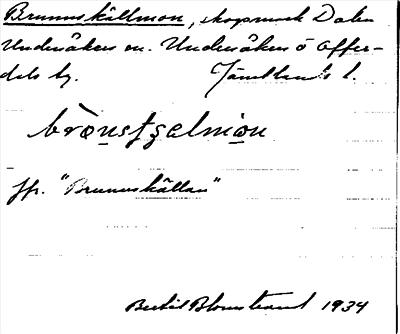 Brunnskällmon, skogsmark Dalen
Undersåkers sn. Undersåkers o Offer-
dals tg. Jämtlands l.
brònstʃɛlmon
Jfr. "Brunnskällan"
Bertil Blomstrand 1934